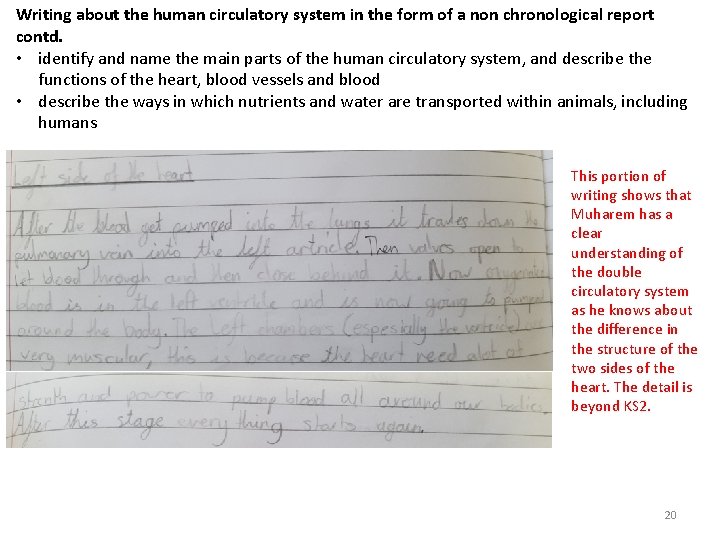 Writing about the human circulatory system in the form of a non chronological report
contd.
• identify and name the main parts of the human circulatory system, and describe the
functions of the heart, blood vessels and blood
• describe the ways in which nutrients and water are transported within animals, including
humans
Left side of the heart
After the blood get pumped into the lungs it travles down the
pulmonary vein into the left artricle. Then valves open to
let blood through and then close behind it. Now oxyginated
blood is in the left ventricle and is now going to pumped
around the body. The left chambers (espesially the ventricle) are
very muscular, this is because the heart need alot of
strenth and power to pump blood all around our bodies.
After this stage every thing starts again.
This portion of
writing shows that
Muharem has a
clear
understanding of
the double
circulatory system
as he knows about
the difference in
the structure of the
two sides of the
heart. The detail is
beyond KS2.
20